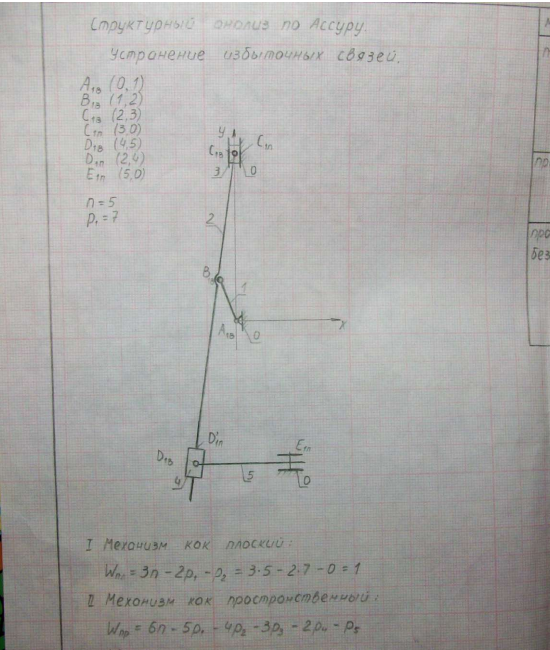 Структурный анализ по Ассуру.
Устранение избыточных связей.
A₁в (0,1)
B₁в (1,2)
C₁в (2,3)
C₁п (3,0)
D₁в (4,5)
D₁п (2,4)
E₁п (5,0)
n = 5
p₁ = 7
y
C₁в
C₁п
3
0
2
B
1
A₁в
0
x
D'₁п
D₁в
E₁п
4
5
0
I Механизм как плоский:
Wпл = 3n - 2p₁ - p₂ = 3·5 - 2·7 - 0 = 1
II Механизм как пространственный:
Wпр = 6n - 5p₁ - 4p₂ - 3p₃ - 2p₄ - p₅